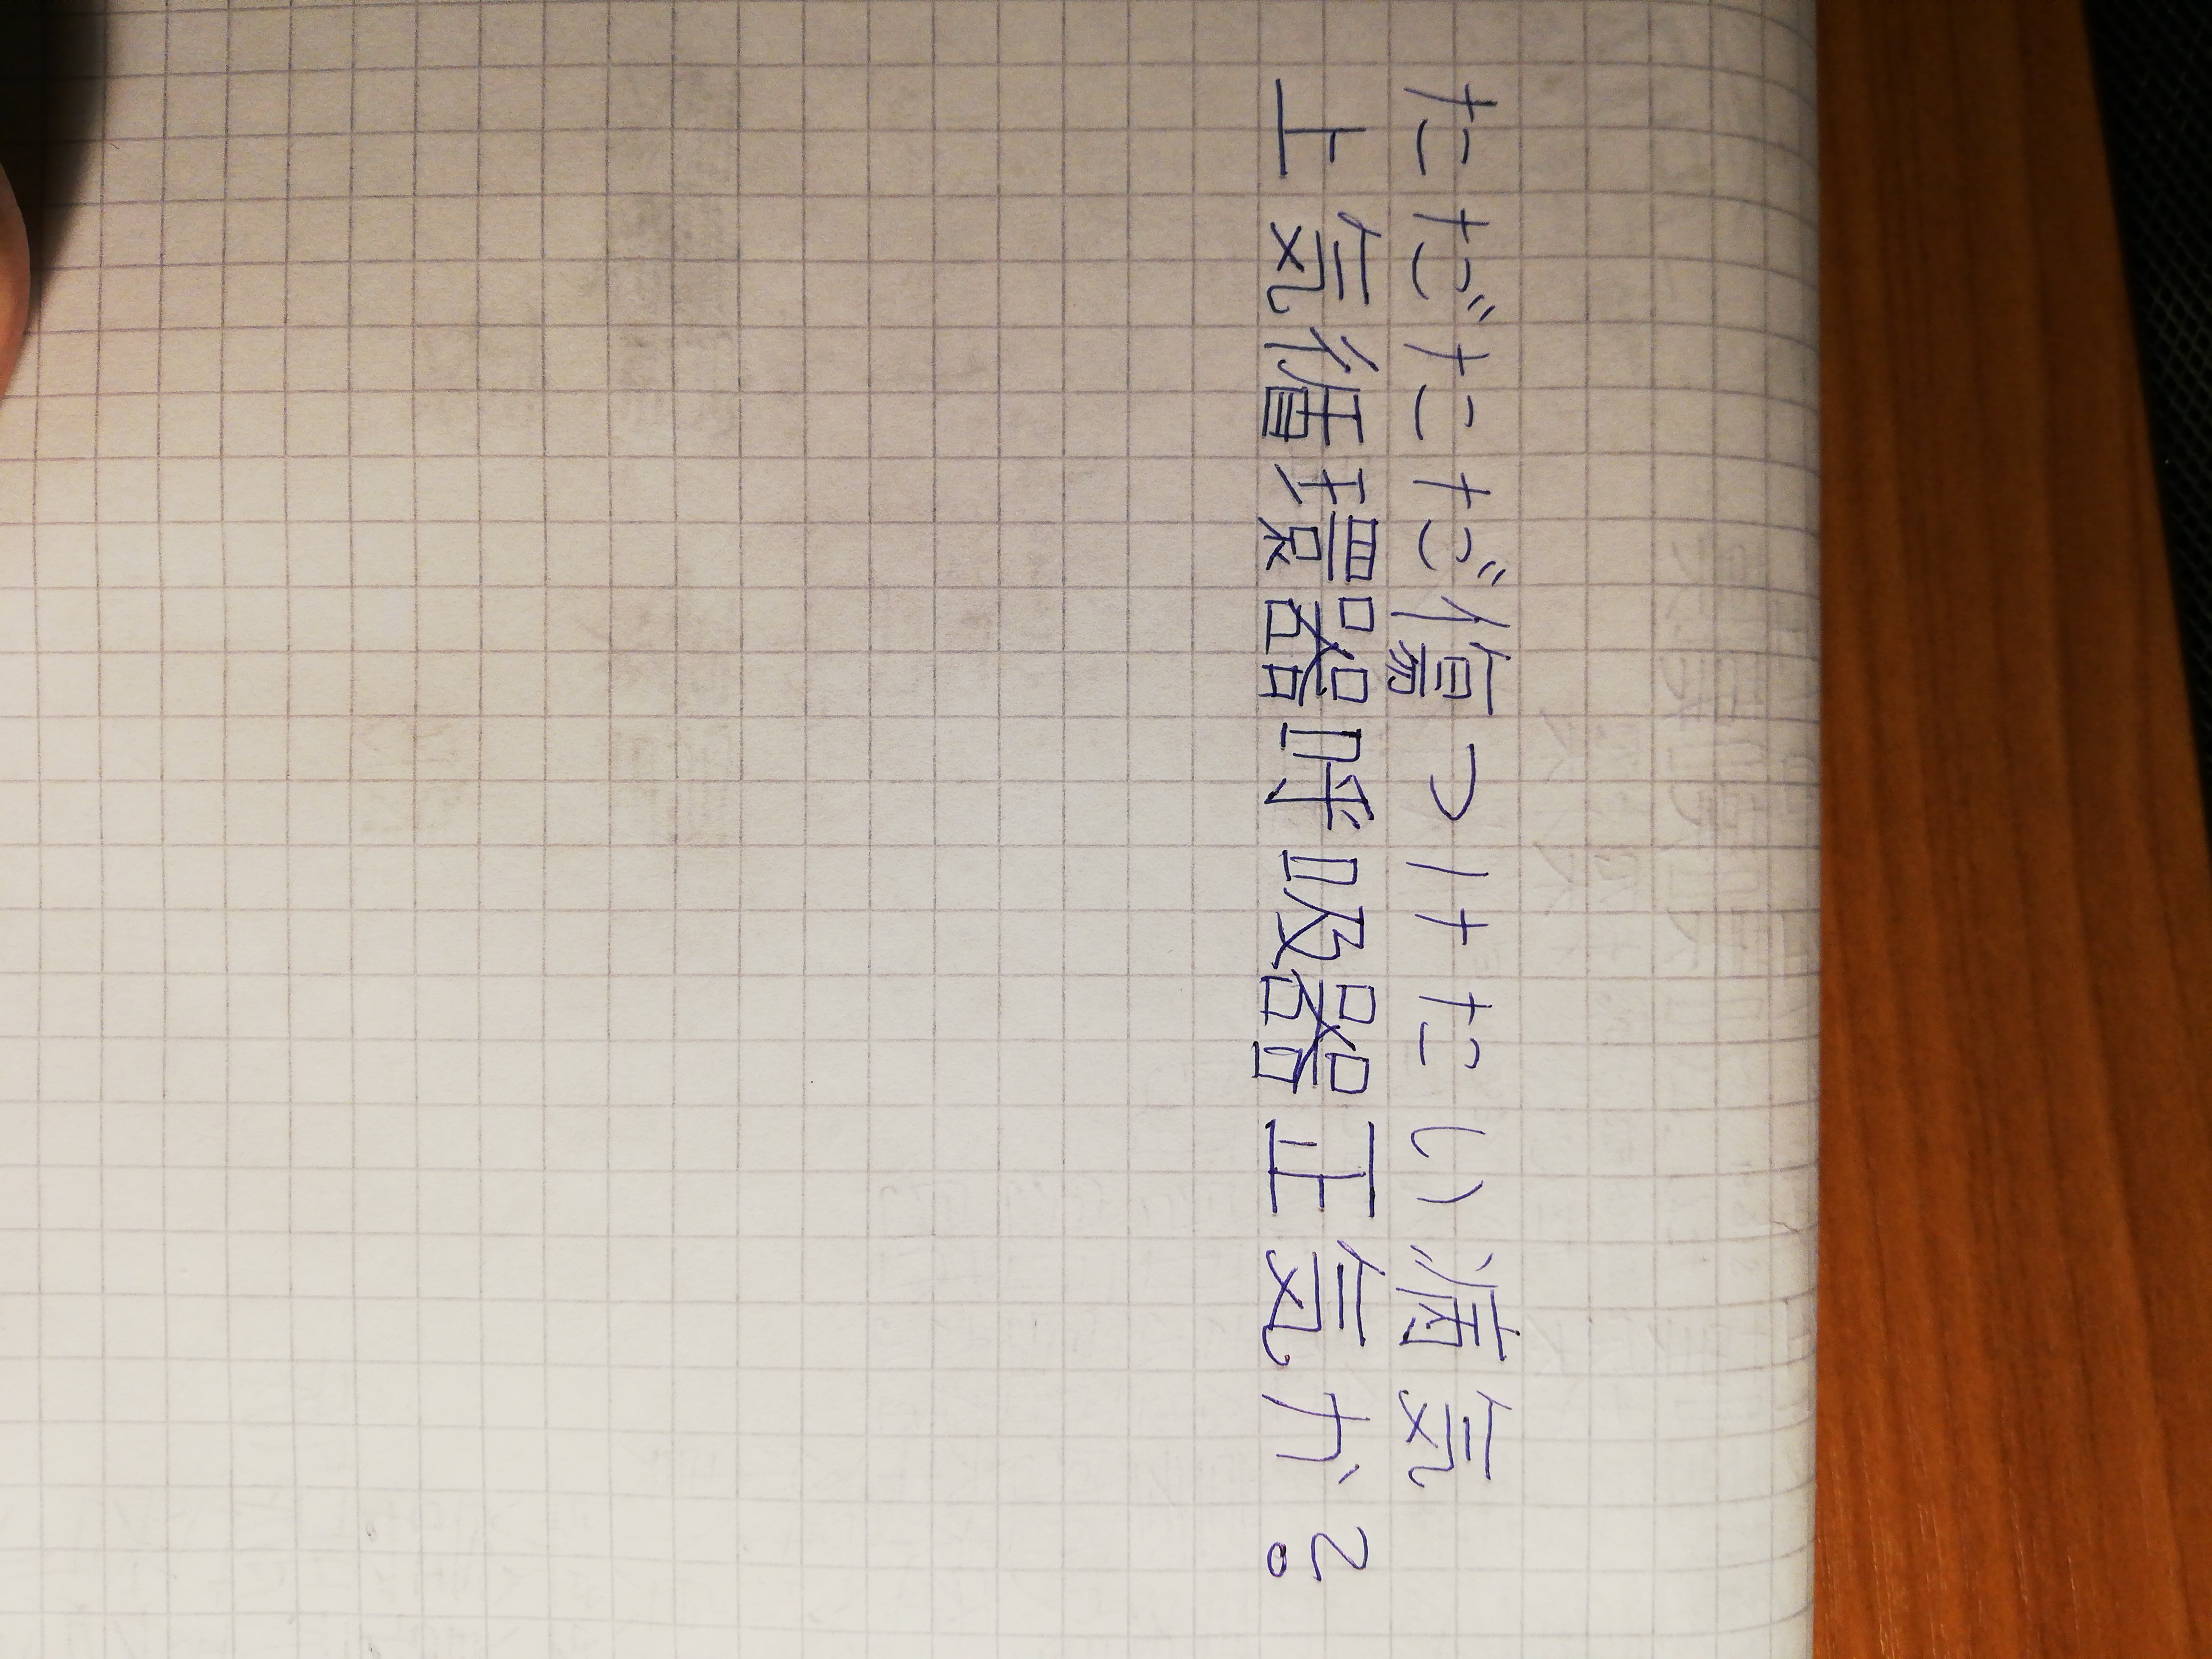 ただただ傷つけたい病気
上気循環器呼吸器正気か？